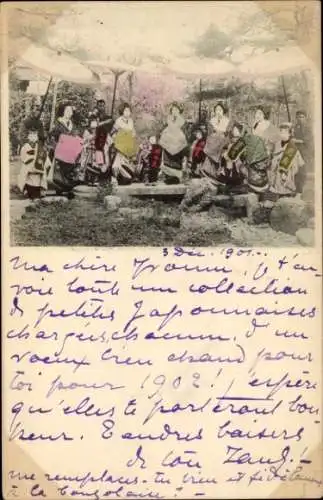 3 Déc. 1901.
Ma chère Yvonne, je t'en-
voie toute une collection
de petites Japonnaises
chargées, chacune, d'un
voeux bien chaud pour
toi pour 1902! J'espère
qu'elles te porteront bon-
heur. Tendres baisers
de ton
me remplaces-tu bien et
à la